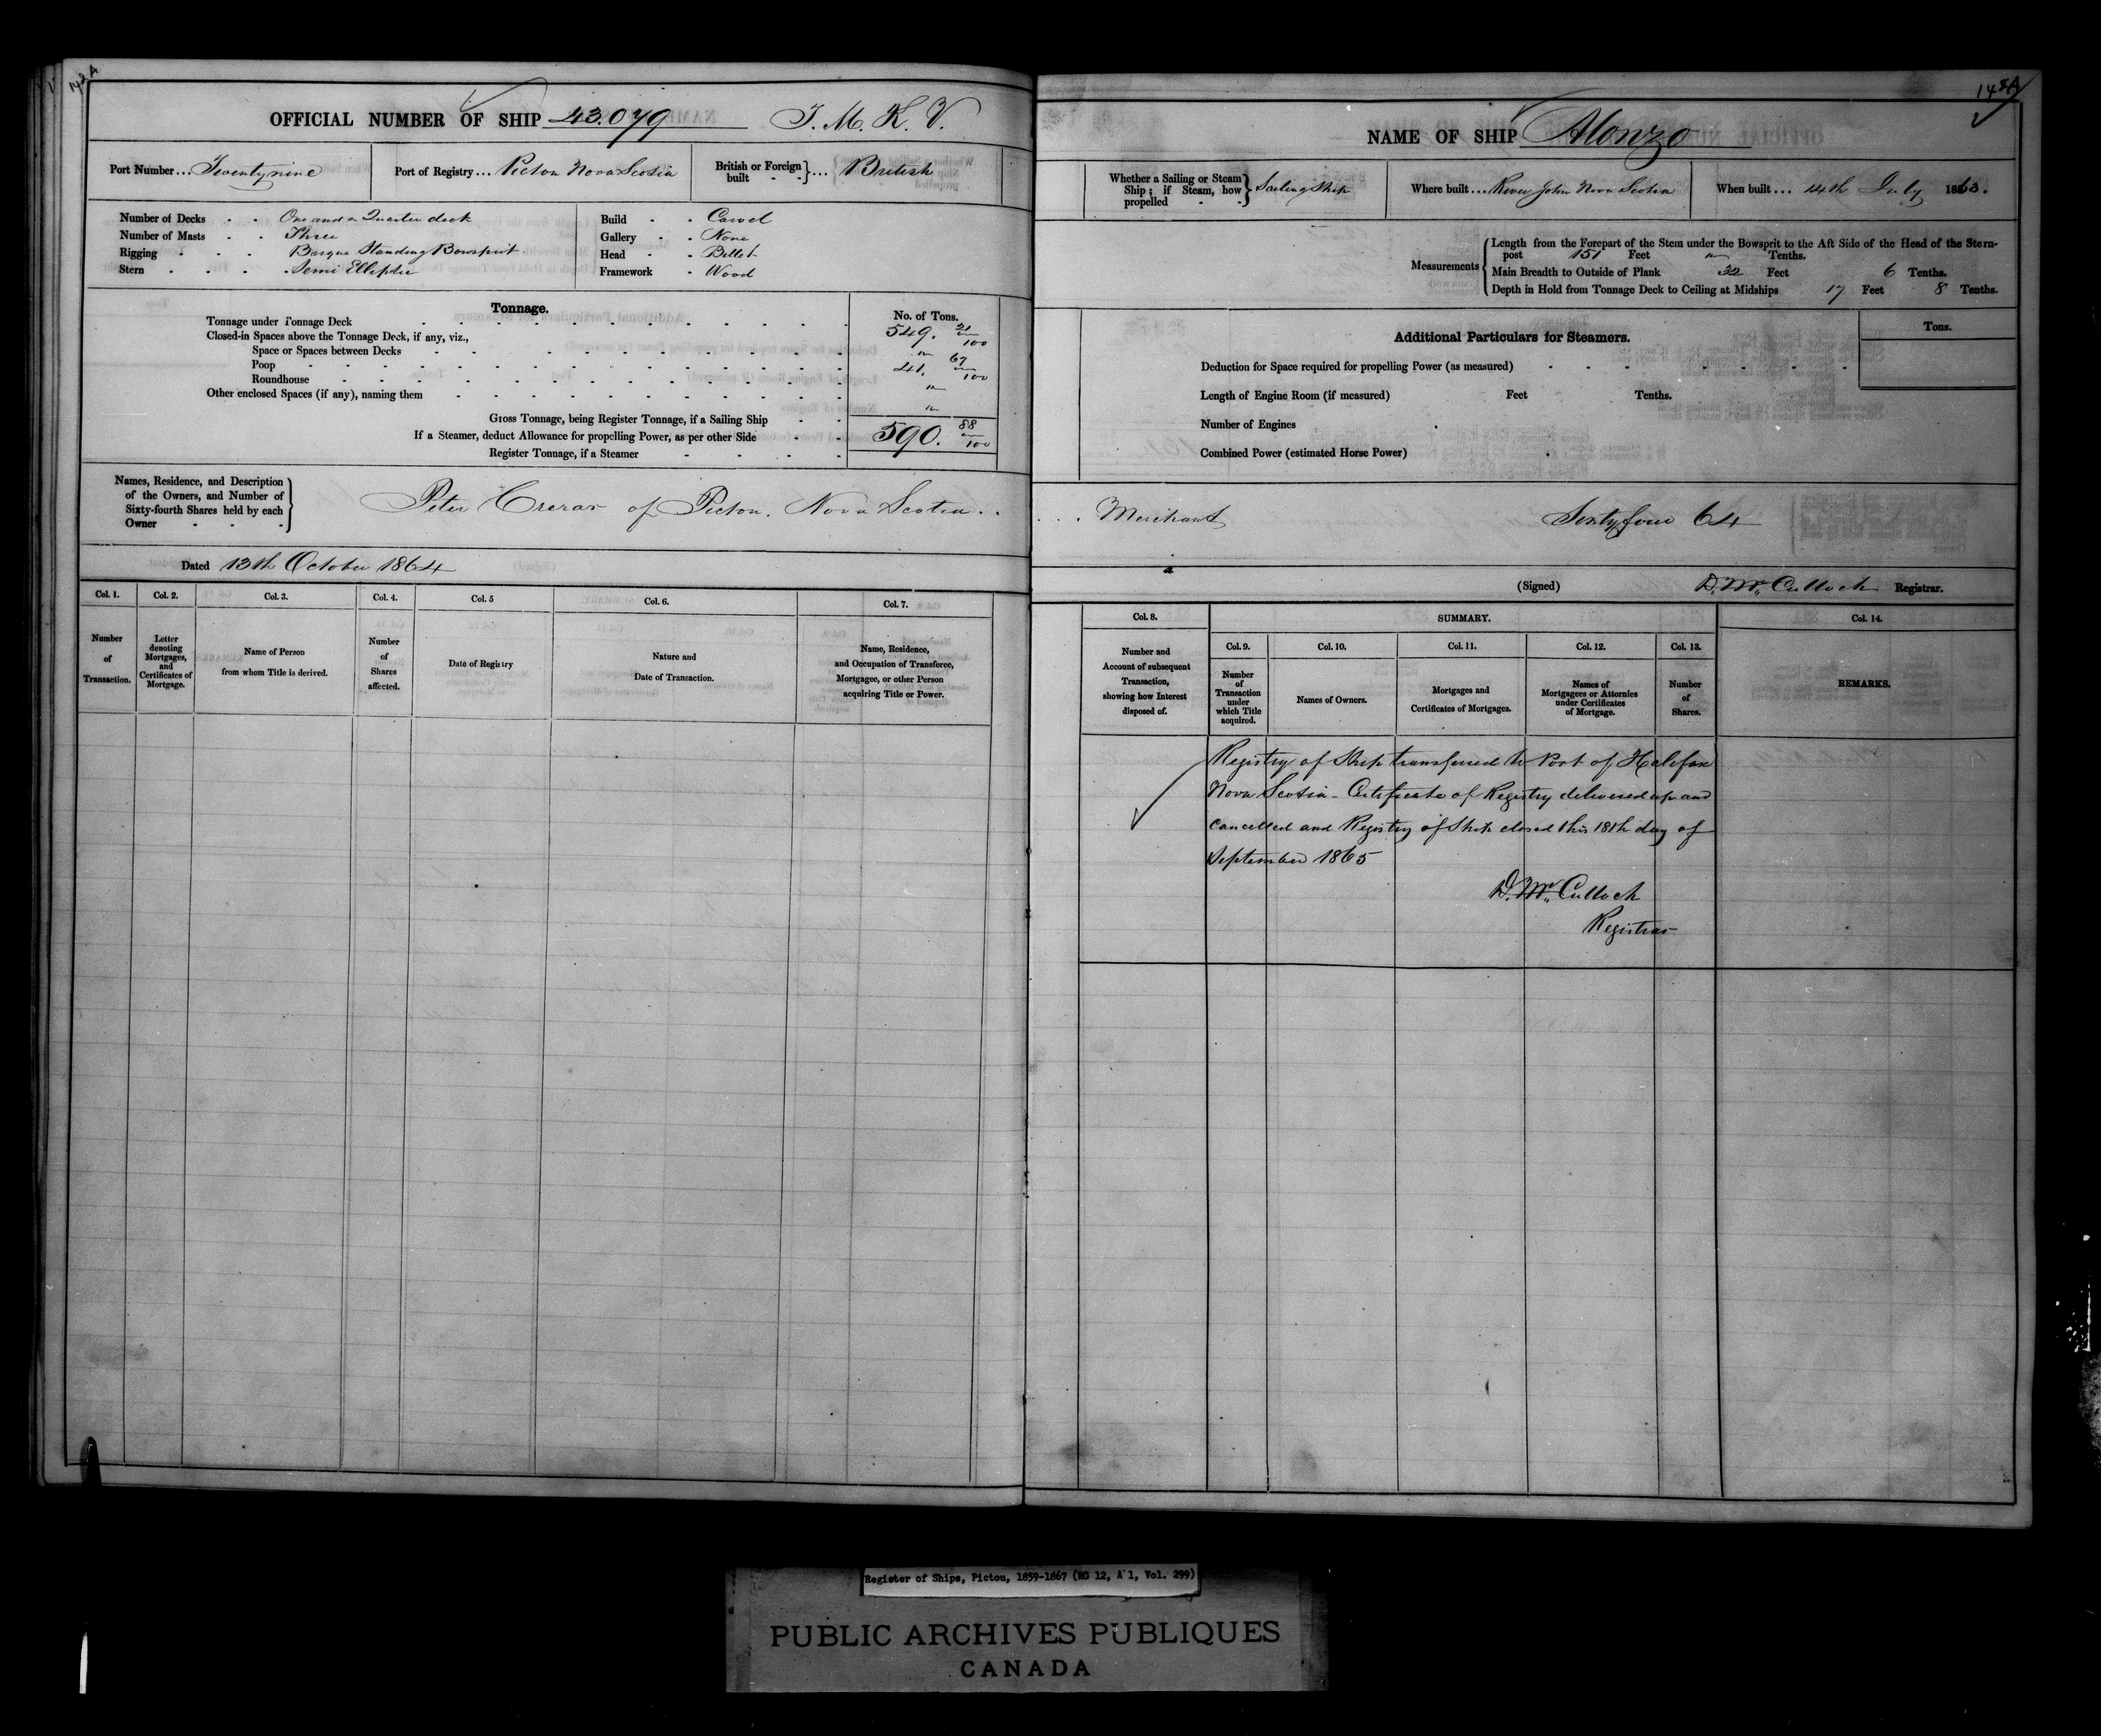 142A
OFFICIAL NUMBER OF SHIP 43.079 T. M. K. V.
Port Number... Twenty nine Port of Registry... Pictou Nova Scotia British or Foreign built - - } ... British
Number of Decks - - One and a Quarter deck
Number of Masts - - Three
Rigging - - - Barque Standing Bowsprit
Stern - - - - Semi Elliptic
Build - - Carvel
Gallery - - None
Head - - Billet
Framework - Wood
Tonnage.
No. of Tons.
Tonnage under Tonnage Deck 549. 21/100
Closed-in Spaces above the Tonnage Deck, if any, viz.,
Space or Spaces between Decks "
Poop 41. 67/100
Roundhouse "
Other enclosed Spaces (if any), naming them "
Gross Tonnage, being Register Tonnage, if a Sailing Ship
If a Steamer, deduct Allowance for propelling Power, as per other Side 590. 88/100
Register Tonnage, if a Steamer
Names, Residence, and Description
of the Owners, and Number of
Sixty-fourth Shares held by each
Owner
Peter Crerar of Pictou. Nova Scotia..
Dated 13th October 1864
Col. 1. Col. 2. Col. 3. Col. 4. Col. 5 Col. 6. Col. 7.
Number of Transaction.
Letter denoting Mortgages, and Certificates of Mortgage.
Name of Person from whom Title is derived.
Number of Shares affected.
Date of Registry
Nature and Date of Transaction.
Name, Residence, and Occupation of Transferee, Mortgagee, or other Person acquiring Title or Power.
NAME OF SHIP Alonzo
Whether a Sailing or Steam Ship; if Steam, how propelled - - } Sailing Ship Where built... River John Nova Scotia When built... 14th July 1863.
Measurements
Length from the Forepart of the Stem under the Bowsprit to the Aft Side of the Head of the Stern-
post 151 Feet " Tenths.
Main Breadth to Outside of Plank 32 Feet 6 Tenths.
Depth in Hold from Tonnage Deck to Ceiling at Midships 17 Feet 8 Tenths.
Additional Particulars for Steamers.
Tons.
Deduction for Space required for propelling Power (as measured)
Length of Engine Room (if measured) Feet Tenths.
Number of Engines
Combined Power (estimated Horse Power)
... Merchant Sixty four 64
(Signed) D. McCulloch Registrar.
Col. 8. SUMMARY. Col. 14.
Col. 9. Col. 10. Col. 11. Col. 12. Col. 13.
Number and Account of subsequent Transaction, showing how Interest disposed of.
Number of Transaction under which Title acquired.
Names of Owners.
Mortgages and Certificates of Mortgages.
Names of Mortgagees or Attornies under Certificates of Mortgage.
Number of Shares.
REMARKS.
Registry of Ship transferred to Port of Halifax
Nova Scotia - Certificate of Registry delivered up and
cancelled and Registry of Ship closed this 18th day of
September 1865
D. McCulloch
Registrar
Register of Ships, Pictou, 1859-1867 (RG 12, A 1, Vol. 299)
PUBLIC ARCHIVES PUBLIQUES
CANADA